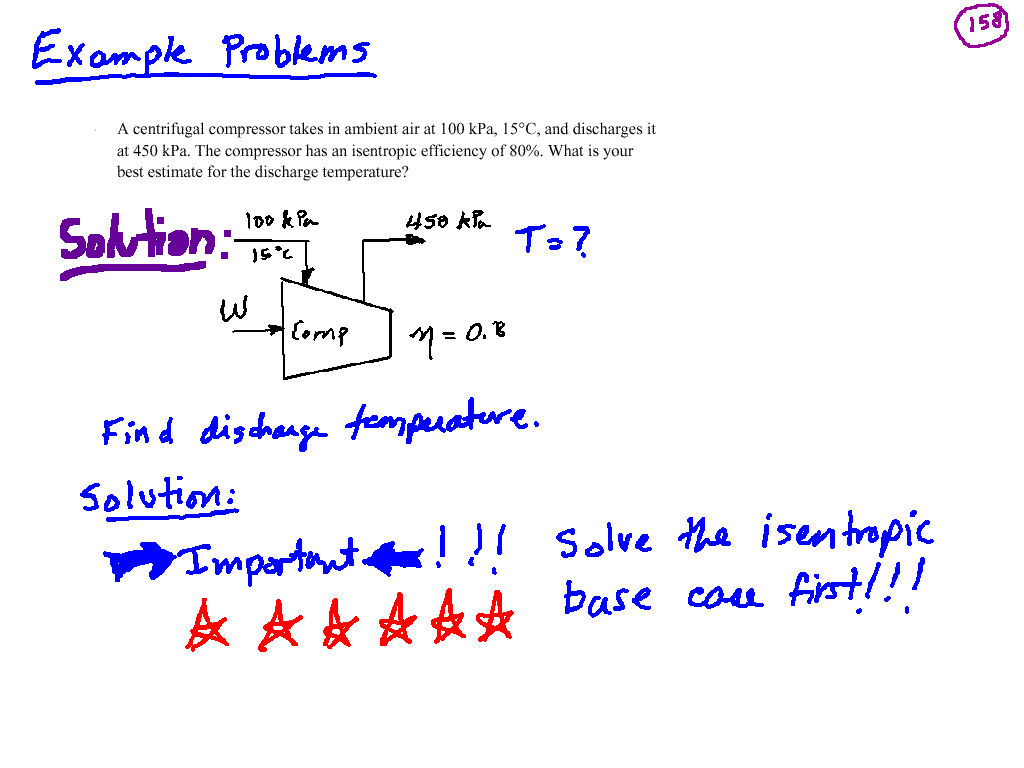 158
Example Problems
A centrifugal compressor takes in ambient air at 100 kPa, 15°C, and discharges it
at 450 kPa. The compressor has an isentropic efficiency of 80%. What is your
best estimate for the discharge temperature?
Solution:
100 kPa
15°C
450 kPa
T = ?
W
Comp
η = 0.8
Find discharge temperature.
Solution:
Important !!!
Solve the isentropic
base case first!!!